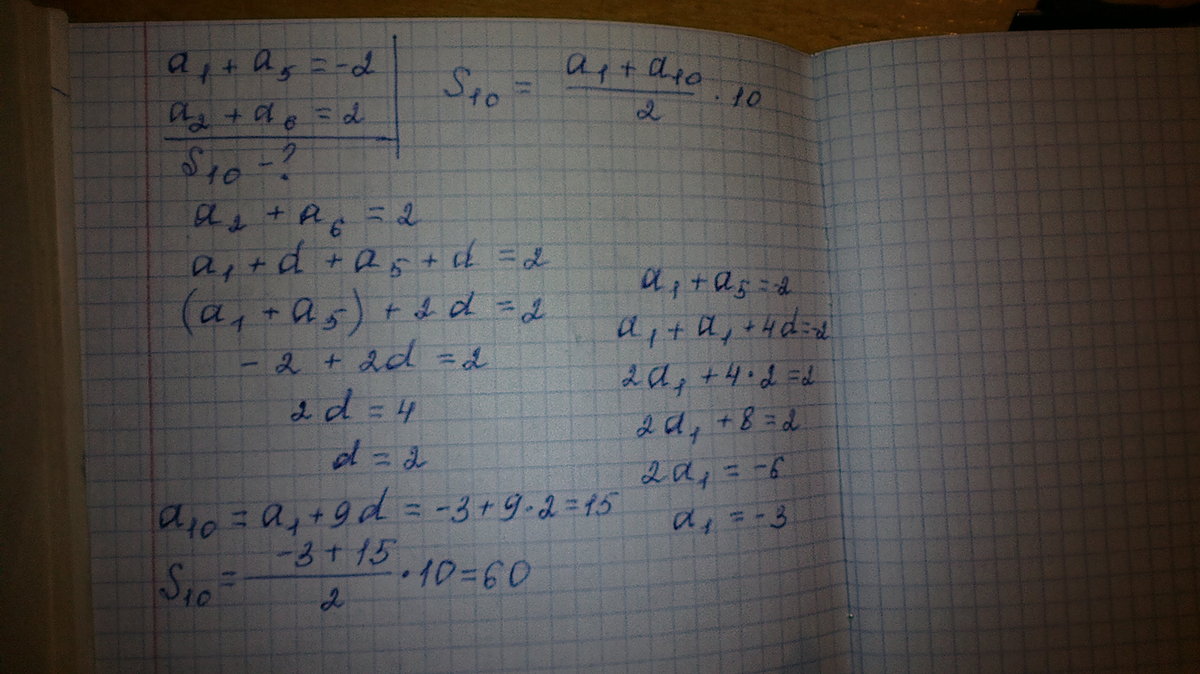 a₁ + a₅ = -2
a₂ + a₆ = 2
S₁₀ - ?
S₁₀ = (a₁ + a₁₀)/2 · 10
a₂ + a₆ = 2
a₁ + d + a₅ + d = 2
(a₁ + a₅) + 2d = 2
- 2 + 2d = 2
2d = 4
d = 2
a₁ + a₅ = -2
a₁ + a₁ + 4d = -2
2a₁ + 4·2 = 2
2a₁ + 8 = 2
2a₁ = -6
a₁ = -3
a₁₀ = a₁ + 9d = -3 + 9·2 = 15
S₁₀ = (-3 + 15)/2 · 10 = 60